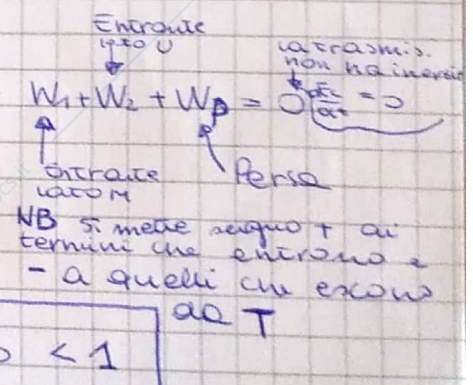 Entrante
lato U
la trasmis.
non ha inerzia
W₁ + W₂ + Wp = 0 dEc/dt = 0
Entrante
lato M
Persa
NB si mette segno + ai
termini che entrano e
- a quelli che escono
da T
< 1